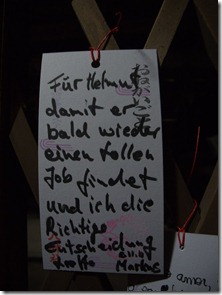 Für Helmut
damit er
bald wieder
einen tollen
Job findet
und ich die
Richtige
Entscheidung
treffe Markus